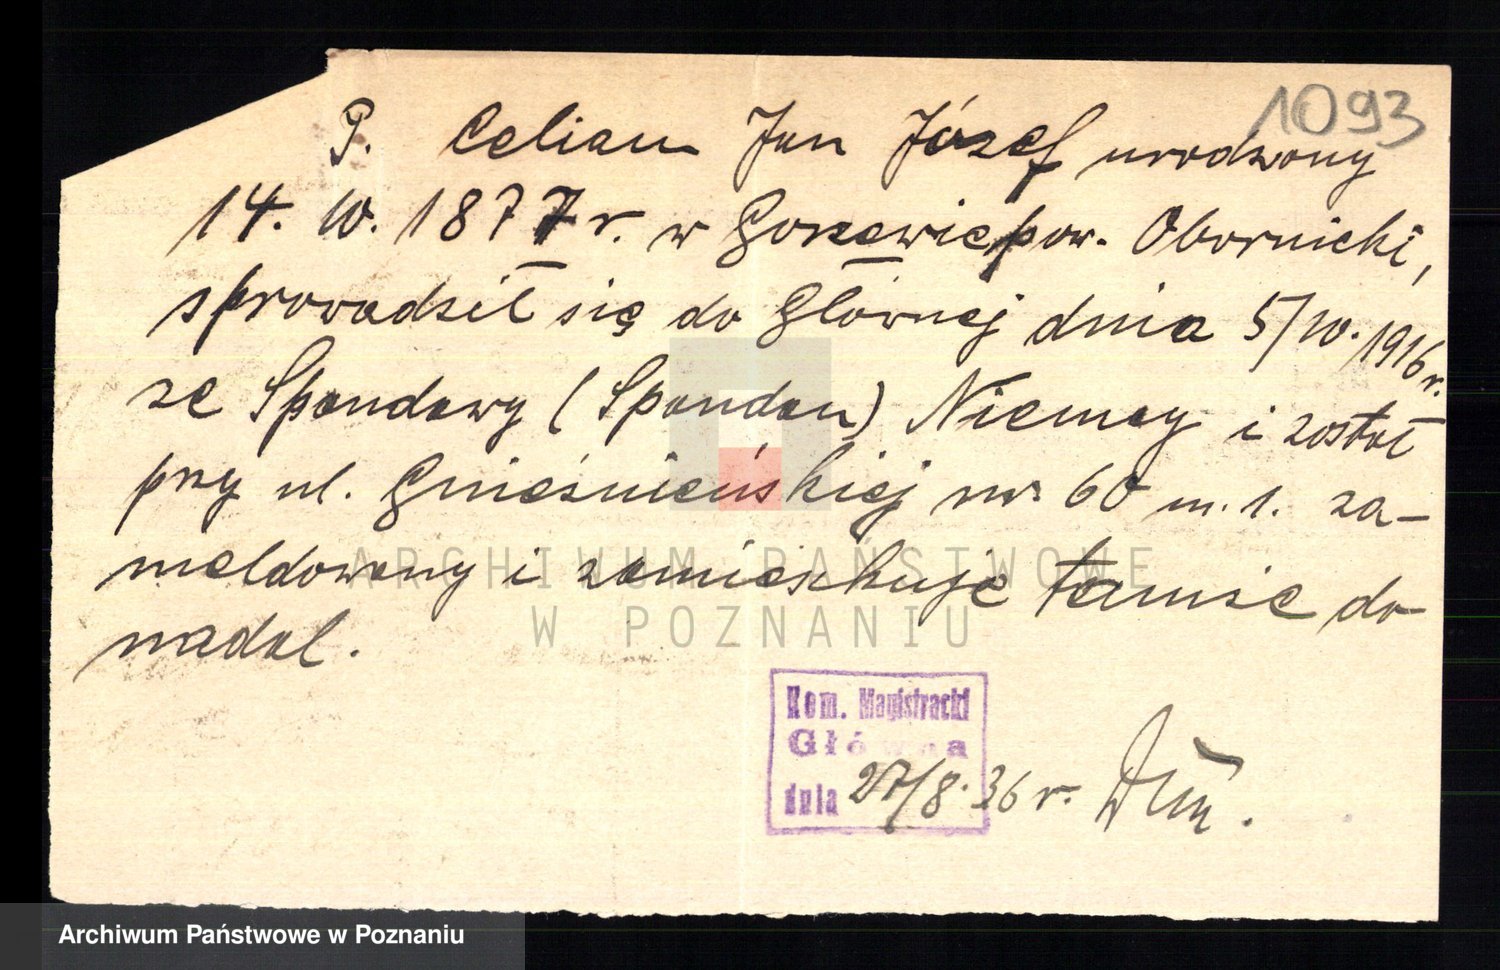 1093
P. Celian Jan Józef urodzony
14. 10. 1877 r. w Gorzewie pow. Obornicki,
sprowadził się do Głównej dnia 5/10. 1916 r.
ze Spandawy (Spandau) Niemcy i został
przy ul. Gnieźnieńskiej nr 60 m. 1. za-
meldowany i zamieszkuje tamże do-
nadal.
Kom. Magistracki
Główna
dnia 27/8. 36 r.
ARCHIWUM PAŃSTWOWE
W POZNANIU
Archiwum Państwowe w Poznaniu